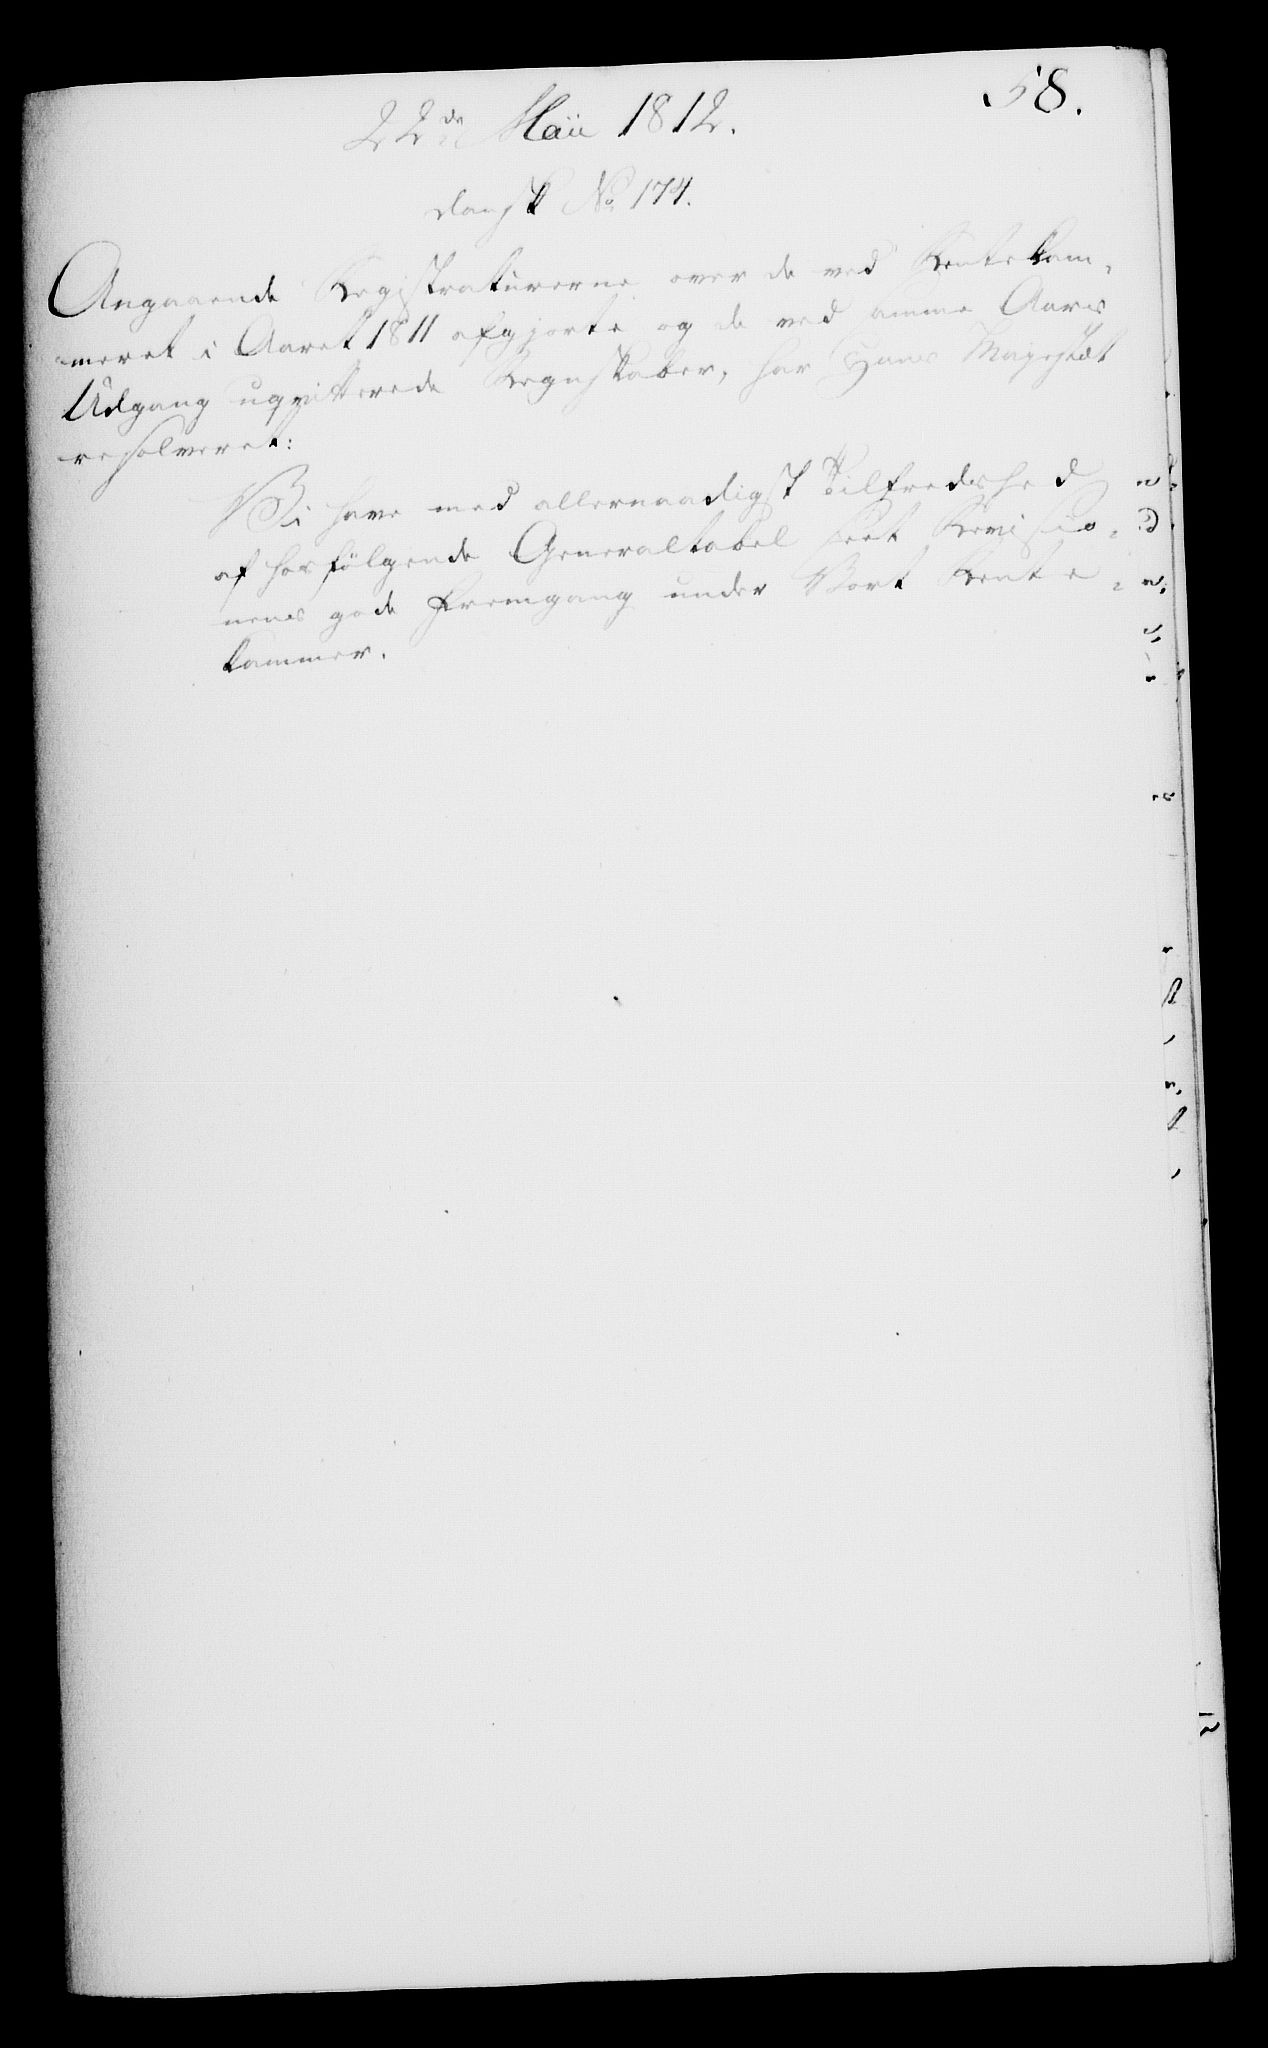 58.
22de Maii 1812.
dansk No 174.
Angaaende Registraturerne over de ved Rentekam-
meret i Aaret 1811 afgjorte og de ved samme Aars
Udgang uqvitterede Regnskaber, har Hans Majestæt
resolveret:
Vi have med allernaadigst Tilfredshed
af hosfølgende Generaltabel seet Revisio-
nens gode Fremgang under Vort Rente-
kammer.